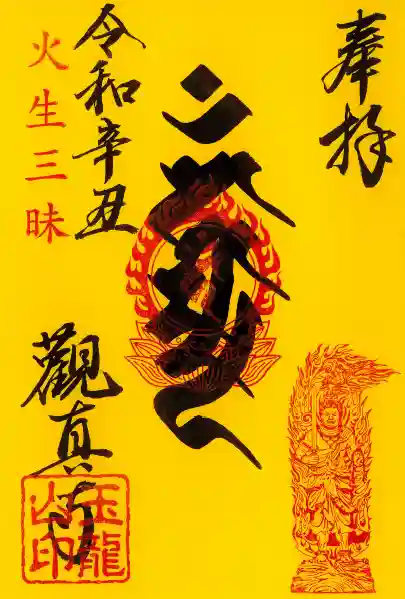 奉拝
令和辛丑
火生三昧
觀真寺
玉龍
山印